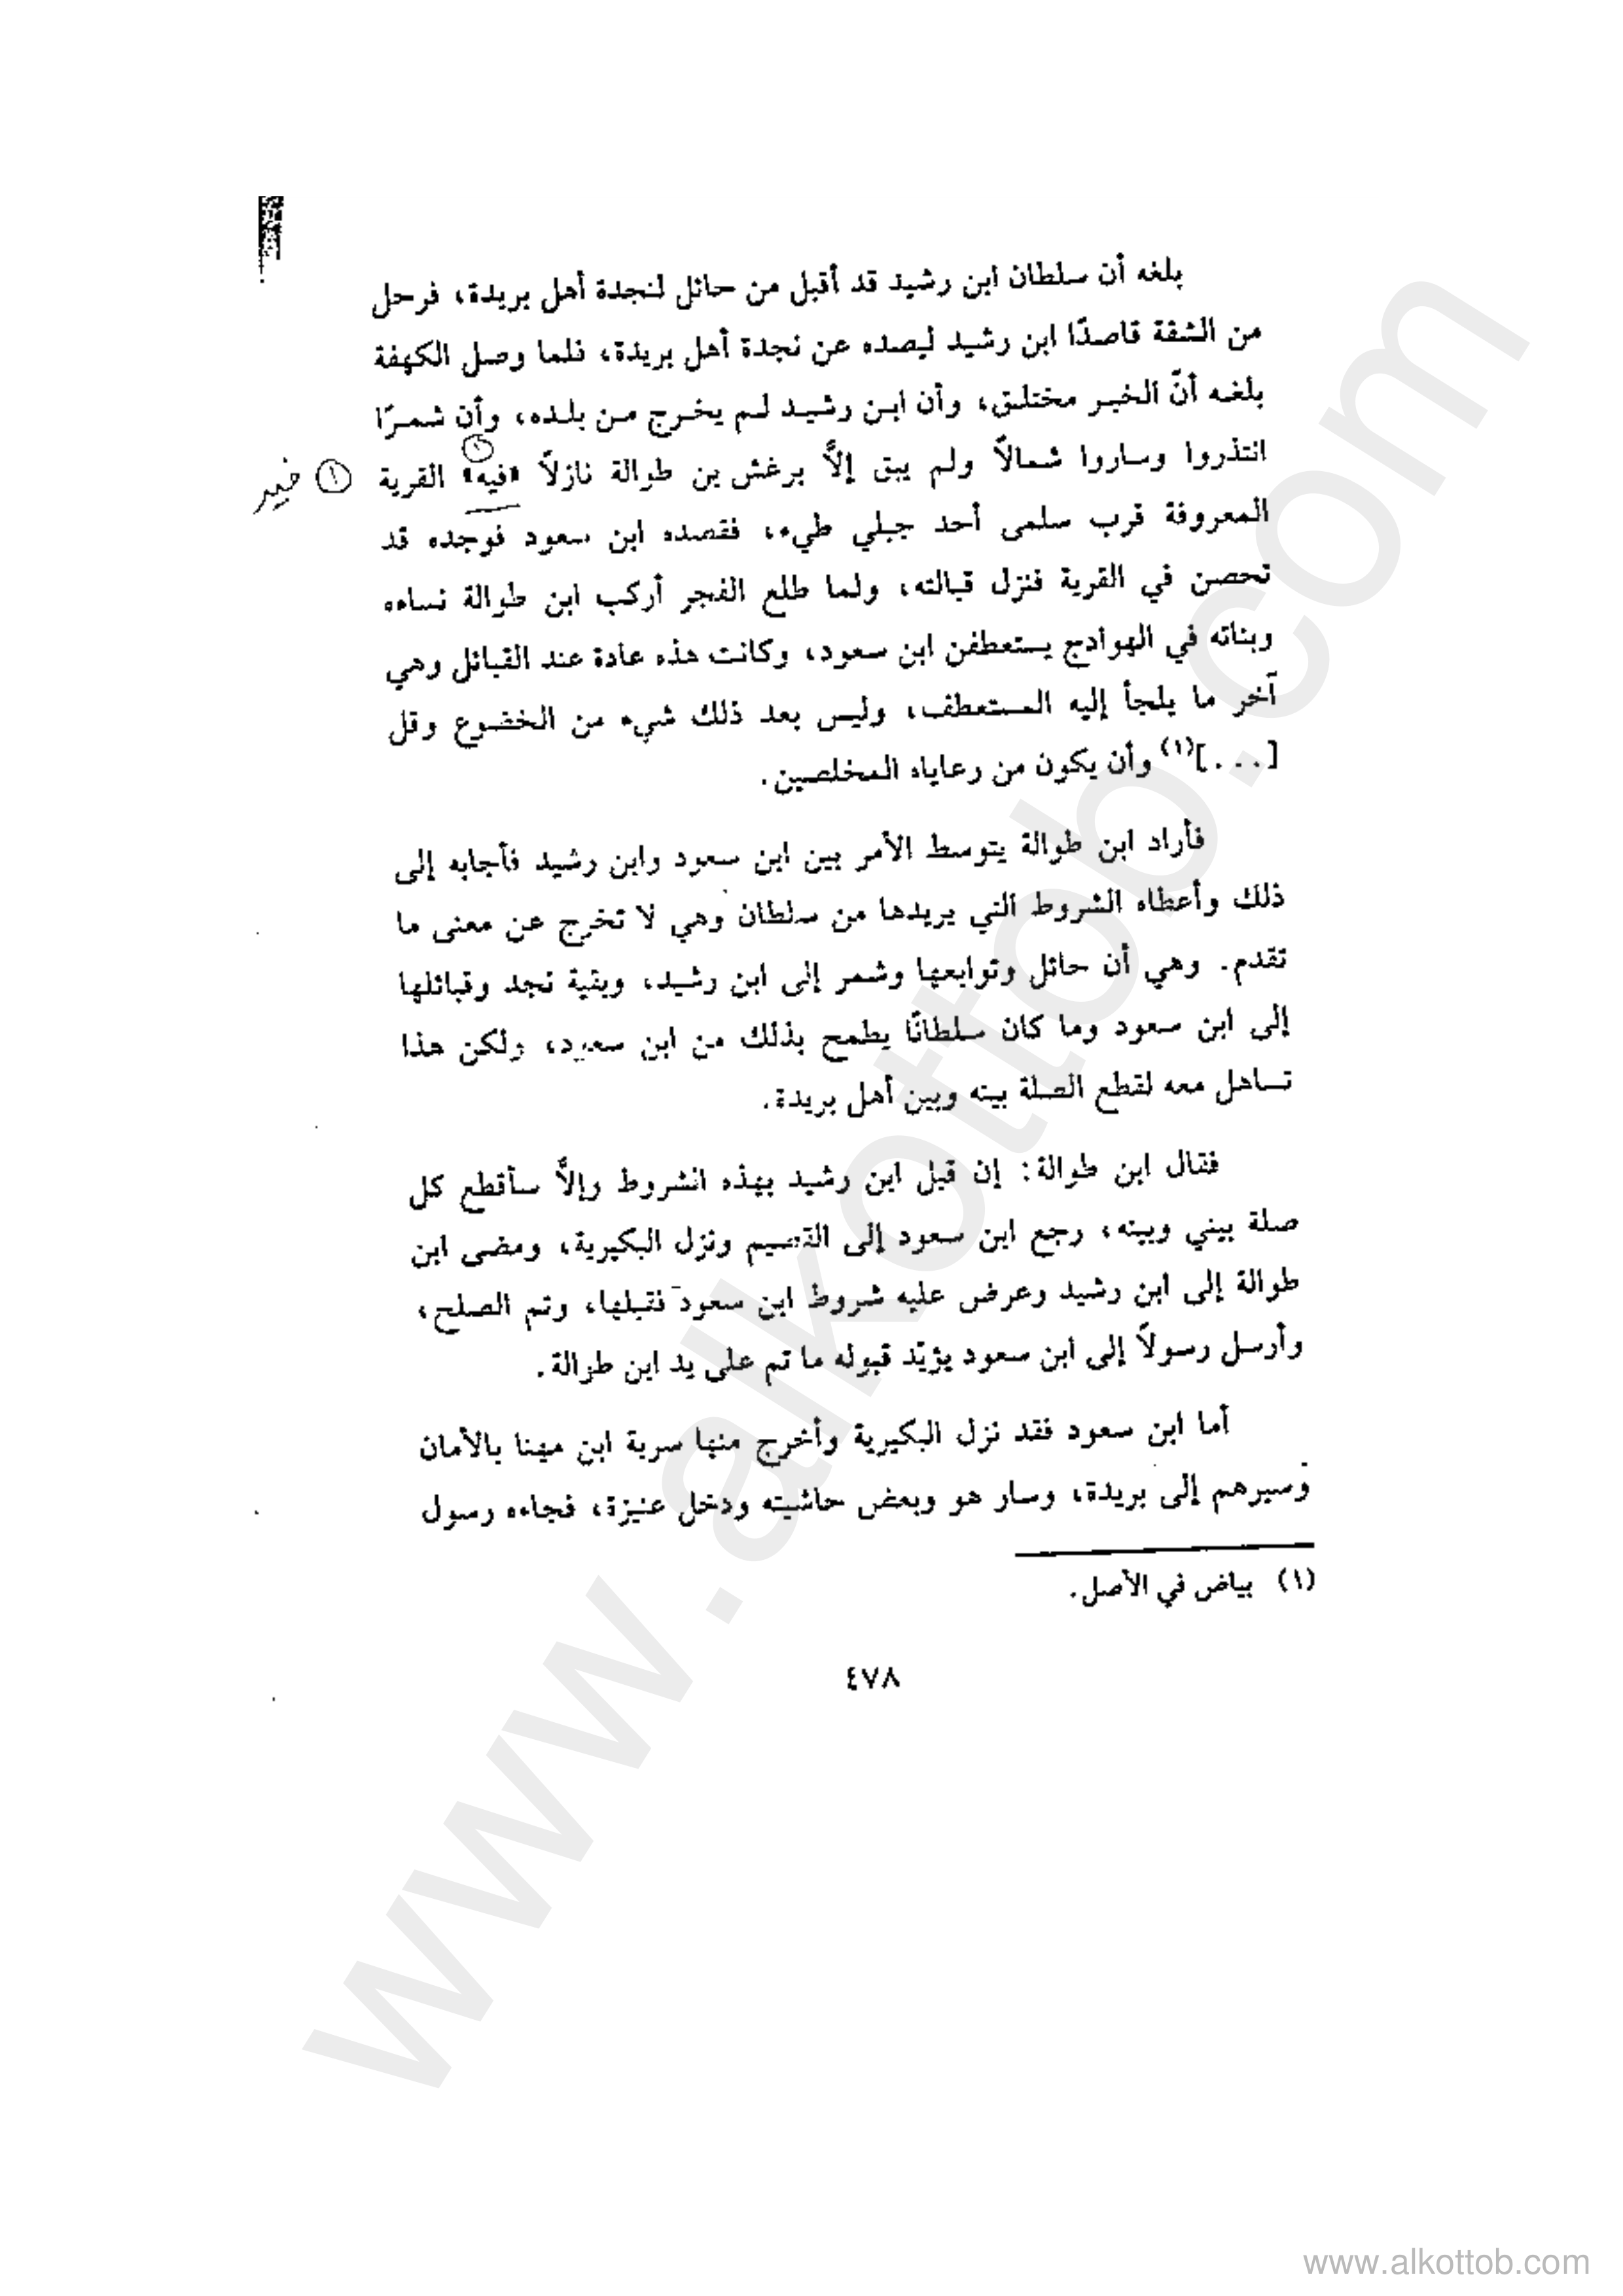 بلغه أن سلطان ابن رشيد قد أقبل من حائل لنجدة أهل بريدة، فرحل
من الشقة قاصدًا ابن رشيد ليصده عن نجدة أهل بريدة، فلما وصل الكهفة
بلغه أنّ الخبر مختلق، وأن ابن رشيد لم يخرج من بلده، وأن شمرًا
انتذروا وساروا شمالاً ولم يبق إلاَّ برغش بن طوالة نازلاً «فيه» القرية
المعروفة قرب سلمى أحد جبلي طيء، فقصده ابن سعود فوجده قد
تحصن في القرية فنزل قبالته، ولما طلع الفجر أركب ابن طوالة نساءه
وبناته في الهوادج يستعطفن ابن سعود، وكانت هذه عادة عند القبائل وهي
آخر ما يلجأ إليه المستعطف، وليس بعد ذلك شيء من الخضوع وقل
[...](١) وأن يكون من رعاياه المخلصين.
فأراد ابن طوالة يتوسط الأمر بين ابن سعود وابن رشيد فأجابه إلى
ذلك وأعطاه الشروط التي يريدها من سلطان وهي لا تخرج عن معنى ما
تقدم. وهي أن حائل وتوابعها وشمر إلى ابن رشيد، وبقية نجد وقبائلها
إلى ابن سعود وما كان سلطانًا يطمح بذلك من ابن سعود، ولكن هذا
تساهل معه لقطع الصلة بينه وبين أهل بريدة.
فقال ابن طوالة: إن قبل ابن رشيد بهذه الشروط وإلاَّ سأقطع كل
صلة بيني وبينه، رجع ابن سعود إلى القصيم ونزل البكيرية، ومضى ابن
طوالة إلى ابن رشيد وعرض عليه شروط ابن سعود فقبلها، وتم الصلح،
وأرسل رسولاً إلى ابن سعود يؤيّد قبوله ما تم على يد ابن طوالة.
أما ابن سعود فقد نزل البكيرية وأخرج منها سرية ابن مهنا بالأمان
وسيرهم إلى بريدة، وسار هو وبعض حاشيته ودخل عنيزة، فجاءه رسول
(١) بياض في الأصل.
٤٧٨
www.alkottob.com
www.alkottob.com